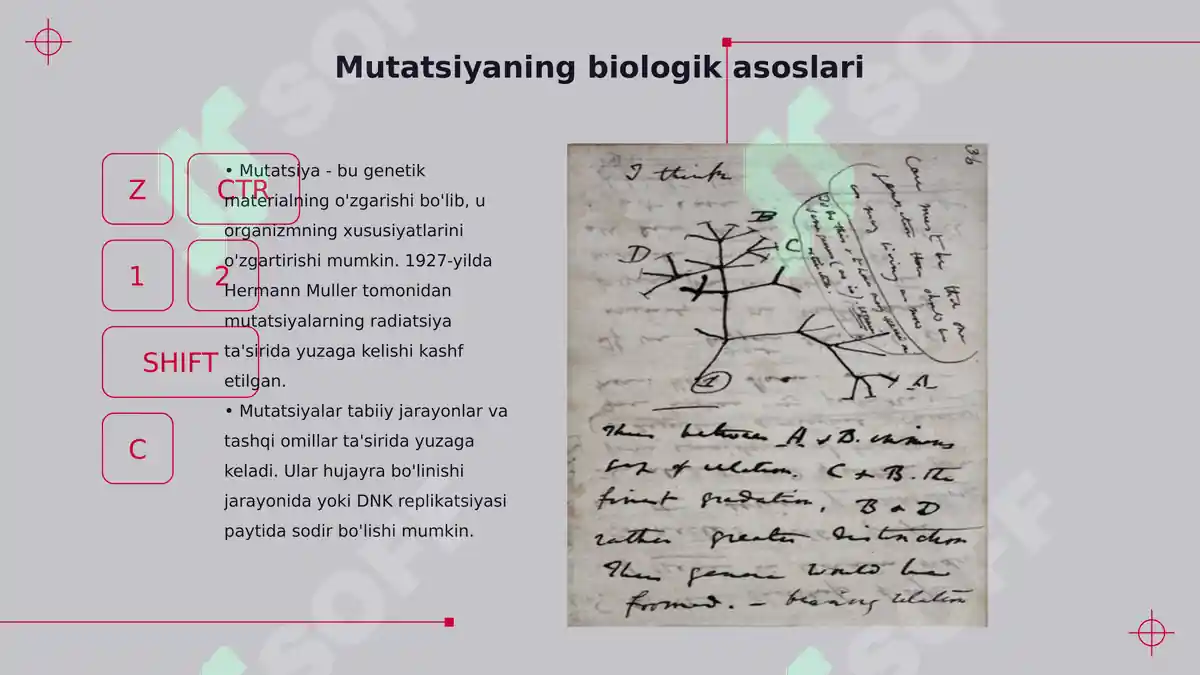 Mutatsiyaning biologik asoslari
Z
CTR
1
2
SHIFT
C
• Mutatsiya - bu genetik
materialning o'zgarishi bo'lib, u
organizmning xususiyatlarini
o'zgartirishi mumkin. 1927-yilda
Hermann Muller tomonidan
mutatsiyalarning radiatsiya
ta'sirida yuzaga kelishi kashf
etilgan.
• Mutatsiyalar tabiiy jarayonlar va
tashqi omillar ta'sirida yuzaga
keladi. Ular hujayra bo'linishi
jarayonida yoki DNK replikatsiyasi
paytida sodir bo'lishi mumkin.
36
I think
B
D
C
A
1
Thus between A & B. immens
gap of relation. C & B. The
finest gradation, B & D
rather greater distinction
Thus genera would be
formed. — bearing relation
SOFF
SOFF
SOFF
SOFF